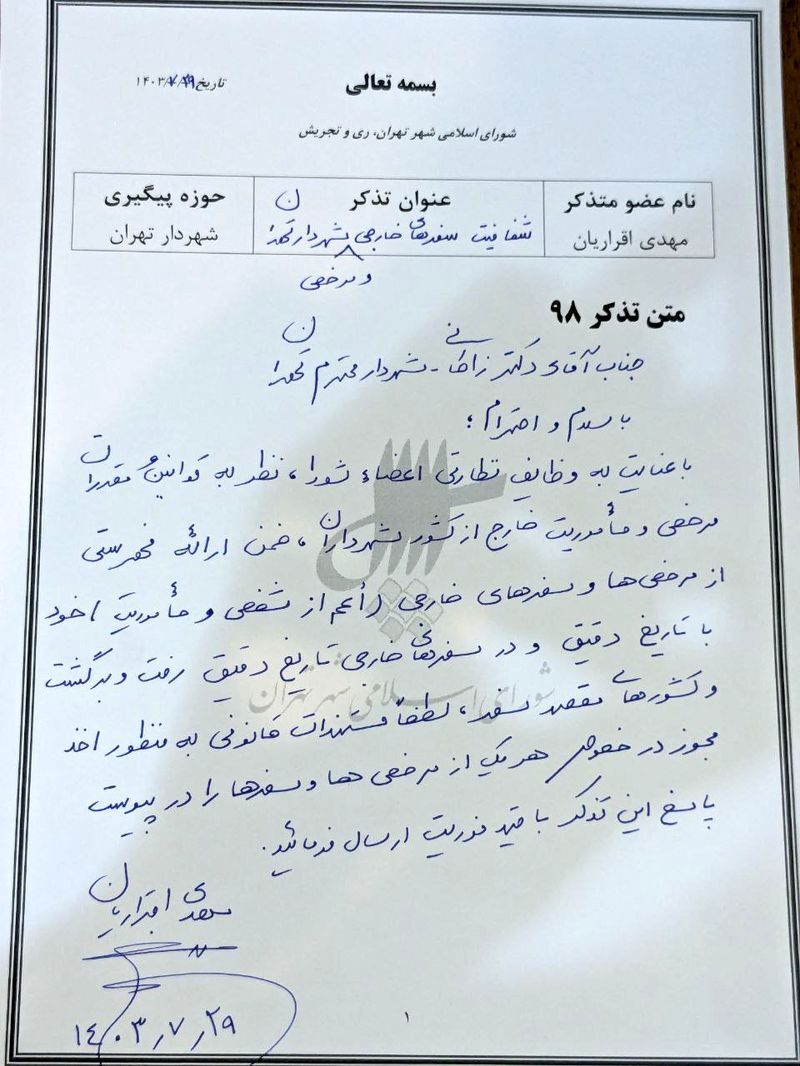 بسمه تعالی
تاریخ ۱۴۰۳/۷/۲۹
شورای اسلامی شهر تهران، ری و تجریش
نام عضو متذکر
عنوان تذکر
حوزه پیگیری
مهدی اقراریان
شفافیت سفرهای خارجی شهردار تهران
و مرخصی
شهردار تهران
متن تذکر ۹۸
جناب آقای دکتر زاکانی - شهردار محترم تهران
با سلام و احترام؛
با عنایت به وظایف نظارتی اعضاء شورا، نظر به قوانین و مقررات
مرخصی و مأموریت خارج از کشور شهرداران، ضمن ارائه فهرستی
از مرخصی‌ها و سفرهای خارجی (أعم از شخصی و مأموریت) خود
با تاریخ دقیق و در سفرهای خارجی تاریخ دقیق رفت و برگشت
و کشورهای مقصد سفر، لطفاً مستندات قانونی به منظور اخذ
مجوز در خصوص هر یک از مرخصی ها و سفرها را در پیوست
پاسخ این تذکر با قید فوریت ارسال فرمائید.
شورای اسلامی شهر تهران
مهدی اقراریان
۱۴۰۳/۷/۲۹
۱